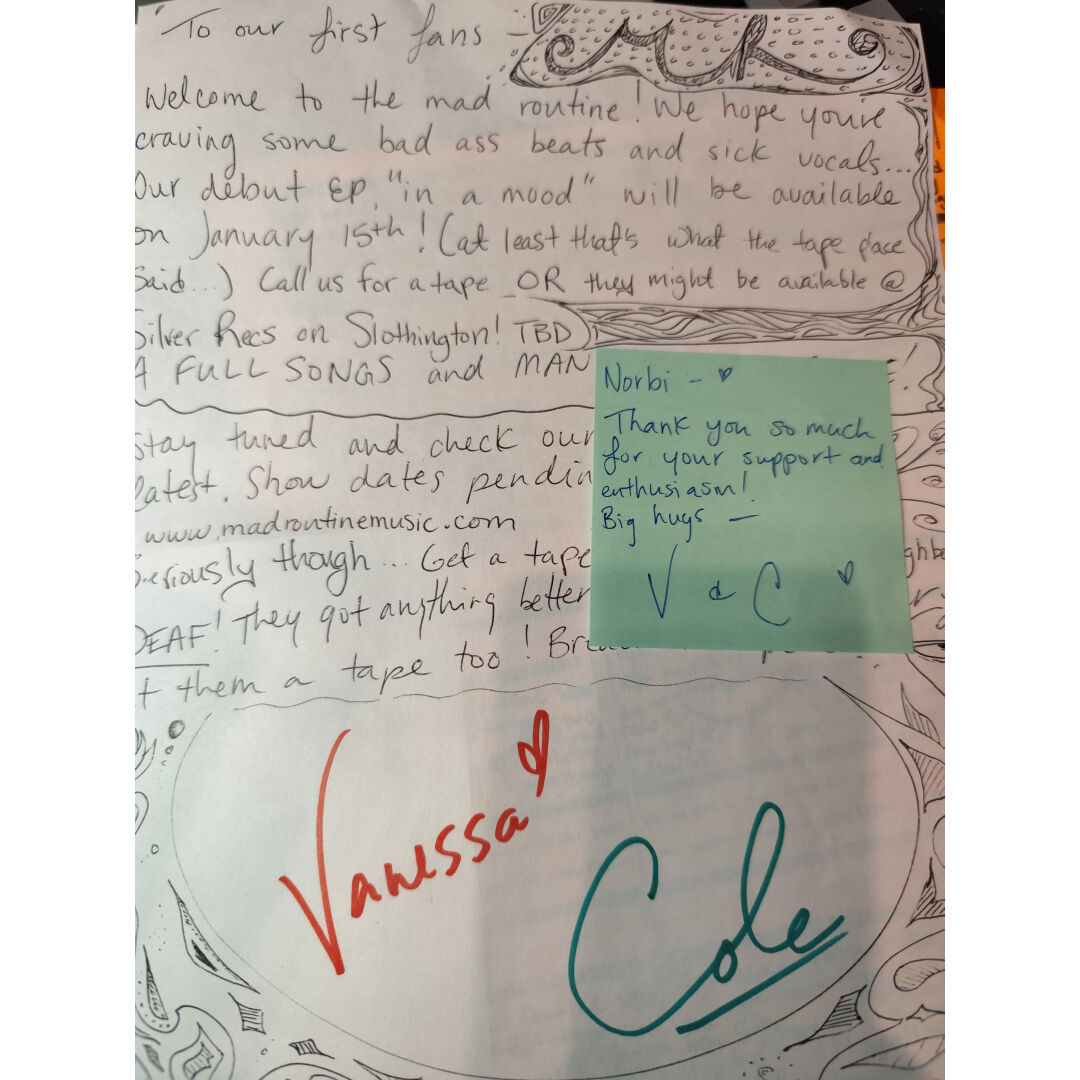 To our first fans –
MR
Welcome to the mad routine! We hope you're
craving some bad ass beats and sick vocals...
Our debut EP, "in a mood" will be available
on January 15th! (at least that's what the tape place
Said...) Call us for a tape OR they might be available @
Silver Recs on Slothington! TBD
4 FULL SONGS and MAN
stay tuned and check our
latest. Show dates pendin
www.madroutinemusic.com
Seriously though... Get a tape
DEAF! They got anything better
t them a tape too!
Norbi – ♥
Thank you so much
for your support and
enthusiasm!
Big hugs —
V & C ♥
Vanessa ♥
Cole